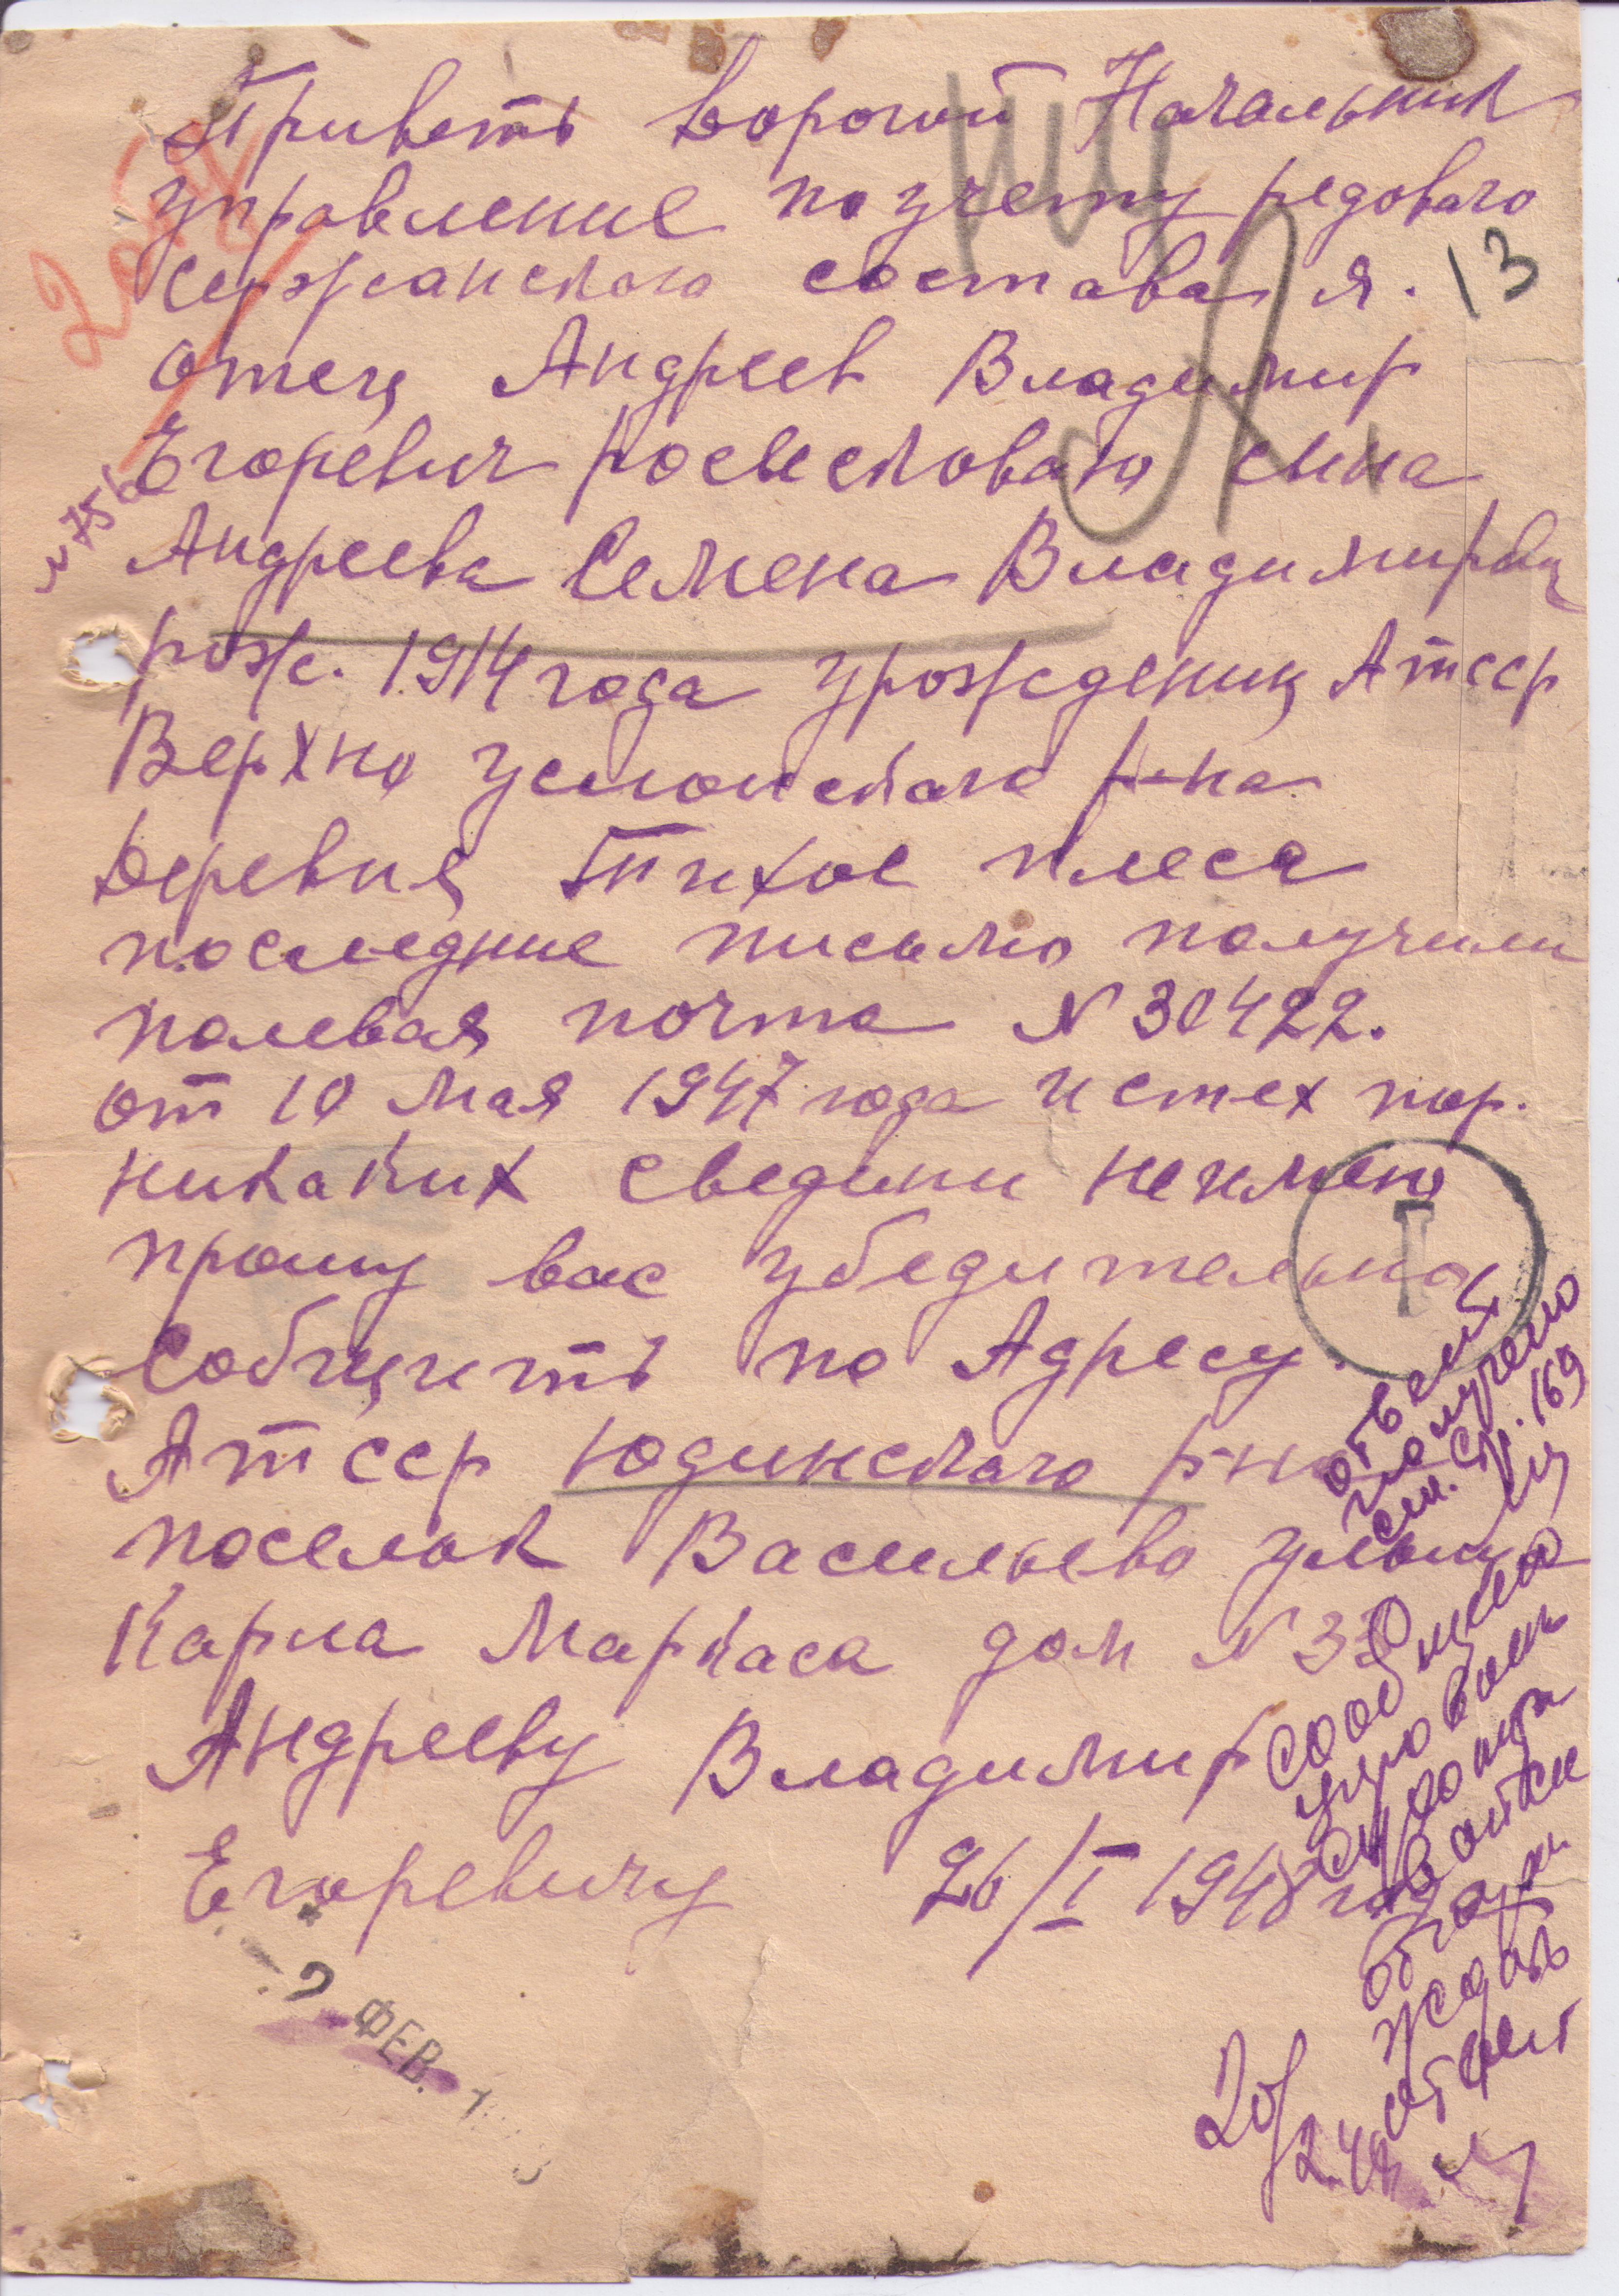 Приветь дорогой Начальник
управление по учету редоваго
сержанскаго состава я.
отец Андреев Владимир
Егоревич росыскиваю сына
Андреева Семена Владимирови
рож. 1914 года урожденец Атсср
Верхно услонскаго р-на
деревня Тихое плеса
последние писмо получили
палевая почта № 30422.
от 10 мая 1947 года и стех пор.
никаких сведини неимею
прошу вас убедительно
Собщить по Адресу.
Атсср Юдинскаго р-на
поселок Васильево улица
Карла Маркаса дом № 33
Андрееву Владимир
Егоревичу 26/I 1948 год
13
I
2 ФЕВ.
ответ
получено
см. ст. 169
Сообщено
ждать
ответ
20/2.48